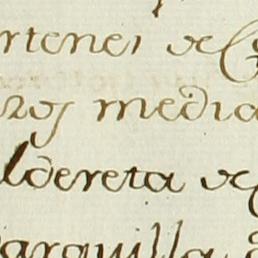 rtenei de
ros media
ldereta de
arquilla